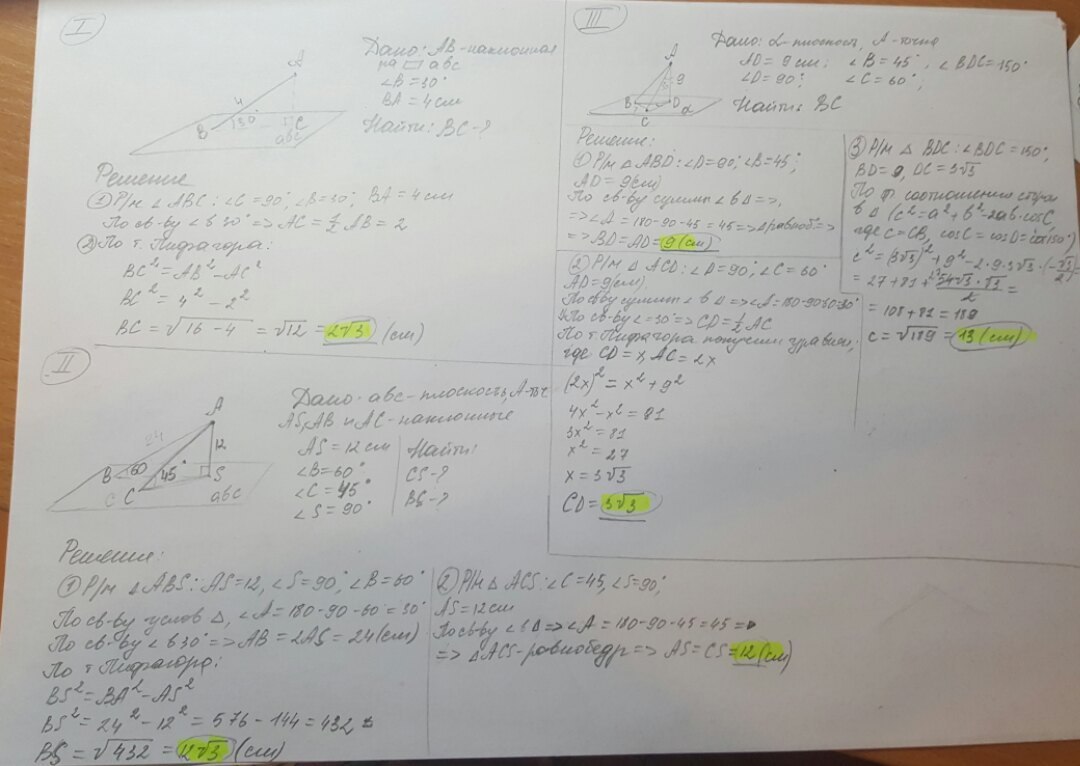 I
A
4
B
30°
C
abc
Дано: AB-наклонная
на ▱ abc
∠B = 30°
BA = 4 см
Найти: BC-?
Решение
① Р/м ∆ABC: ∠C = 90°, ∠B = 30°, BA = 4 см
По св-ву ∠ в 30° => AC = 1/2 AB = 2
② По т. Пифагора:
BC² = AB² - AC²
BC² = 4² - 2²
BC = √16 - 4 = √12 = 2√3 (см)
II
A
24
12
B
60
45°
S
C
C
abc
Дано: abc-плоскость, A-точ
AS, AB и AC-наклонные
AS = 12 см
∠B = 60°
∠C = 45°
∠S = 90°
Найти:
CS-?
BS-?
Решение:
① Р/м ∆ABS: AS = 12, ∠S = 90°, ∠B = 60°
По св-ву углов ∆, ∠A = 180-90-60 = 30°
По св-ву ∠ в 30° => AB = 2AS = 24 (см)
По т Пифагора:
BS² = BA² - AS²
BS² = 24² - 12² = 576 - 144 = 432
BS = √432 = 12√3 (см)
② Р/м ∆ ACS: ∠C = 45, ∠S = 90°,
AS = 12 см
По св-ву ∠ в ∆ => ∠A = 180-90-45 = 45 =>
=> ∆ACS-равнобедр => AS = CS = 12 (см)
III
A
9
B
D
C
α
Дано: α-плоскость, A-точка
AD = 9 см; ∠B = 45°, ∠BDC = 150°
∠D = 90°; ∠C = 60°;
Найти: BC
Решение:
① Р/м ∆ ABD: ∠D = 90°, ∠B = 45°;
AD = 9 (см)
По св-ву суммы ∠ в ∆ =>,
=> ∠A = 180-90-45 = 45 => ∆равноб. =>
=> BD = AD = 9 (см)
② Р/м ∆ ACD: ∠D = 90°, ∠C = 60°
AD = 9 (см)
По св-ву суммы ∠ в ∆ => ∠A = 180-90
По св-ву ∠ = 30° => CD = 1/2 AC
По т. Пифагора получим уравнен,
где CD = x, AC = 2x
(2x)² = x² + 9²
4x² - x² = 81
3x² = 81
x² = 27
x = 3√3
CD = 3√3
③ Р/м ∆ BDC: ∠BDC = 150°,
BD = 9, DC = 3√3
По ф. соотношения
в ∆ (c² = a² + b² - 2ab·cosC
где c = CB, cosC = cosD = cos150°)
c² = (3√3)² + 9² - 2·9·3√3·(-√3/2)
= 27 + 81 + 54√3·√3/2 =
= 108 + 81 = 189
c = √189 = 13 (см)